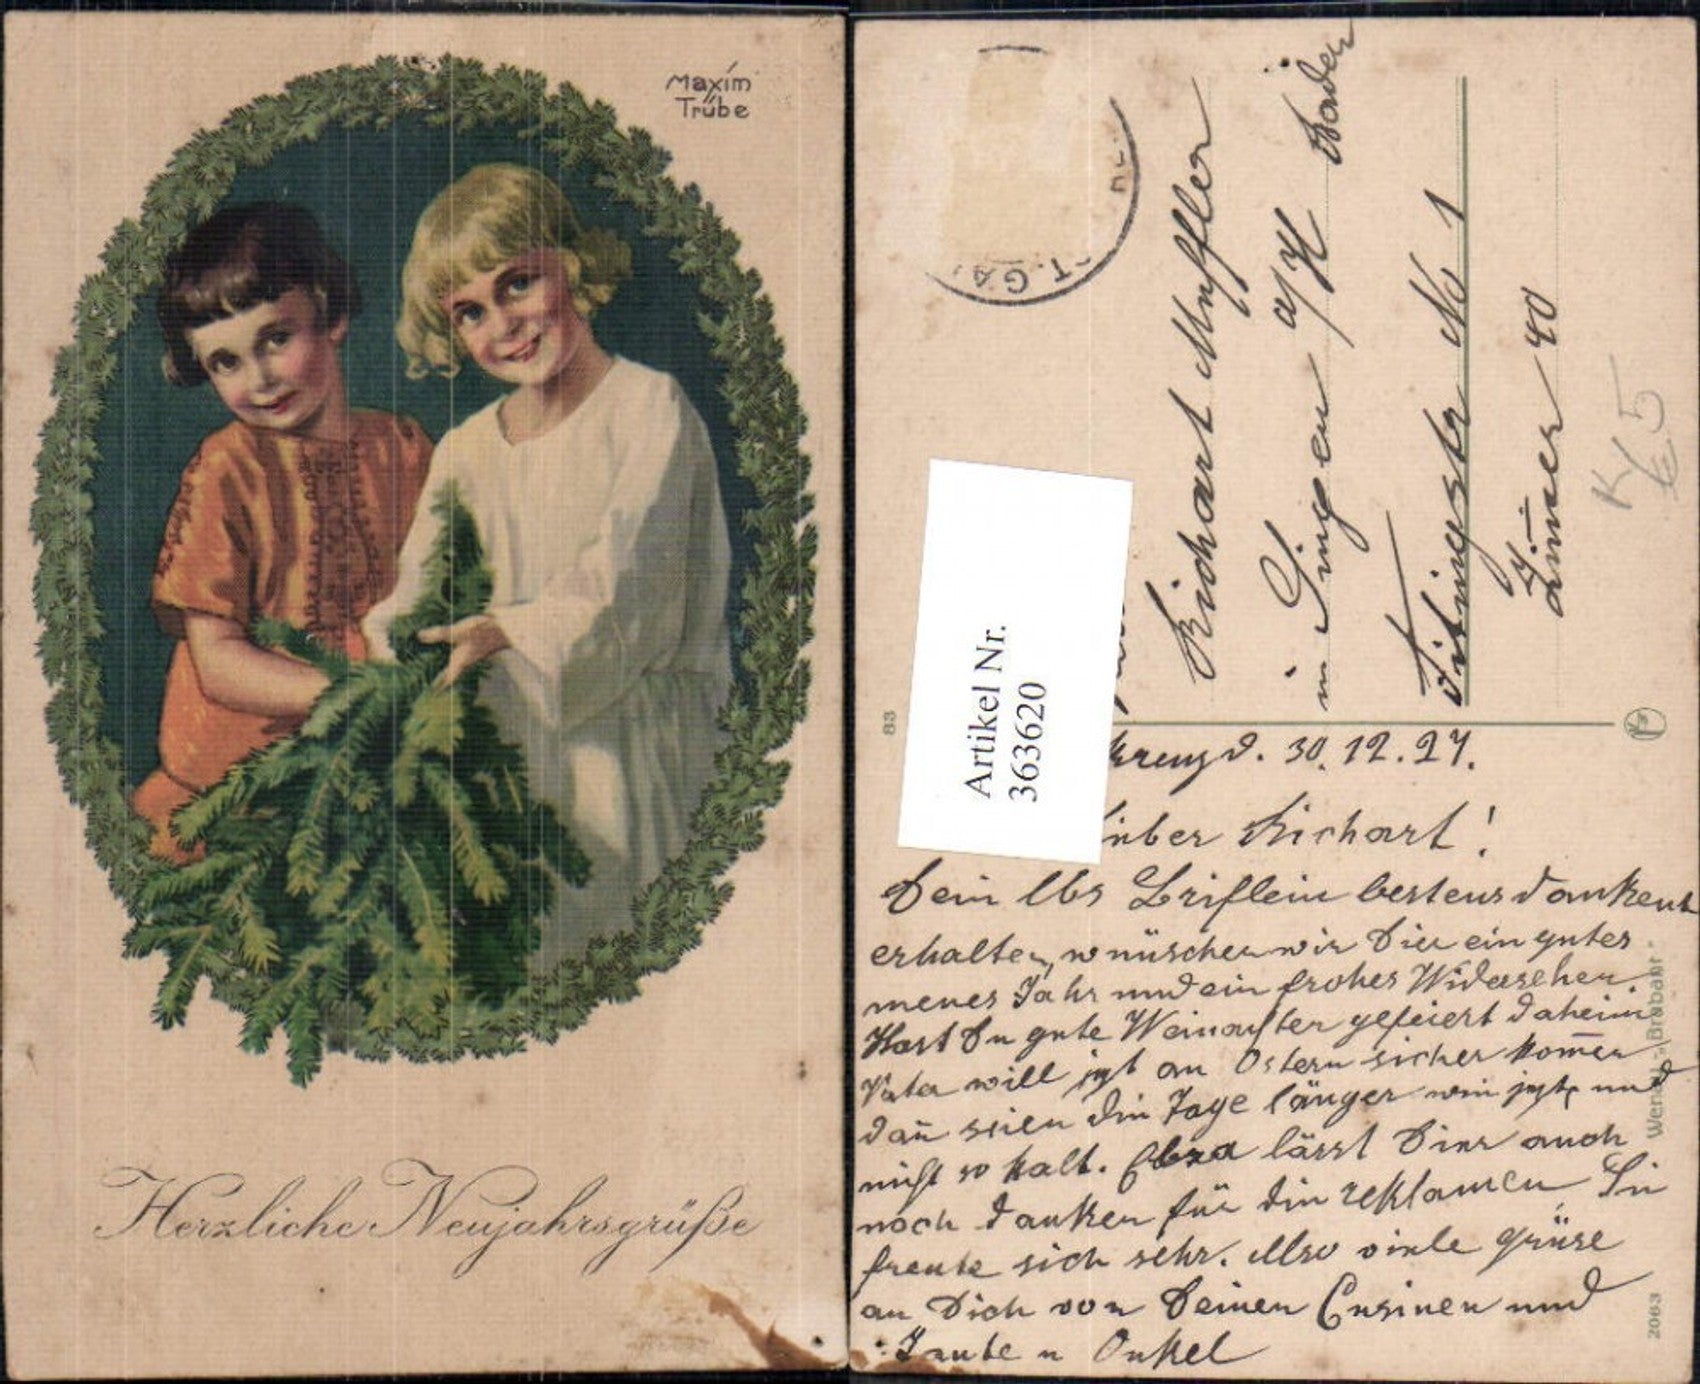 Maxim
Trübe
Herzliche Neujahrsgrüße
T. GA
Richart Muffler
in Singen a/H Baden
No 1
Zimer 40
K 5
Artikel Nr.
363620
83
kreuz d. 30.12.27.
lieber Richart!
Dein lbs Brieflein bestens dankent
erhalten, wünschen wir Dier ein gutes
neues Jahr und ein frohes Widersehen.
Hast Du gute Weinachten gefeiert daheim
Vater will jezt an Ostern sicher komen
dan seien die Tage länger wie jezt und
nicht so kalt. lässt Dier auch
noch danken für die reklamen Sie
freute sich sehr. Also viele grüse
an Dich von Deinen Cusinen und
Tante u Onkel
Wenau-Brabant
2063